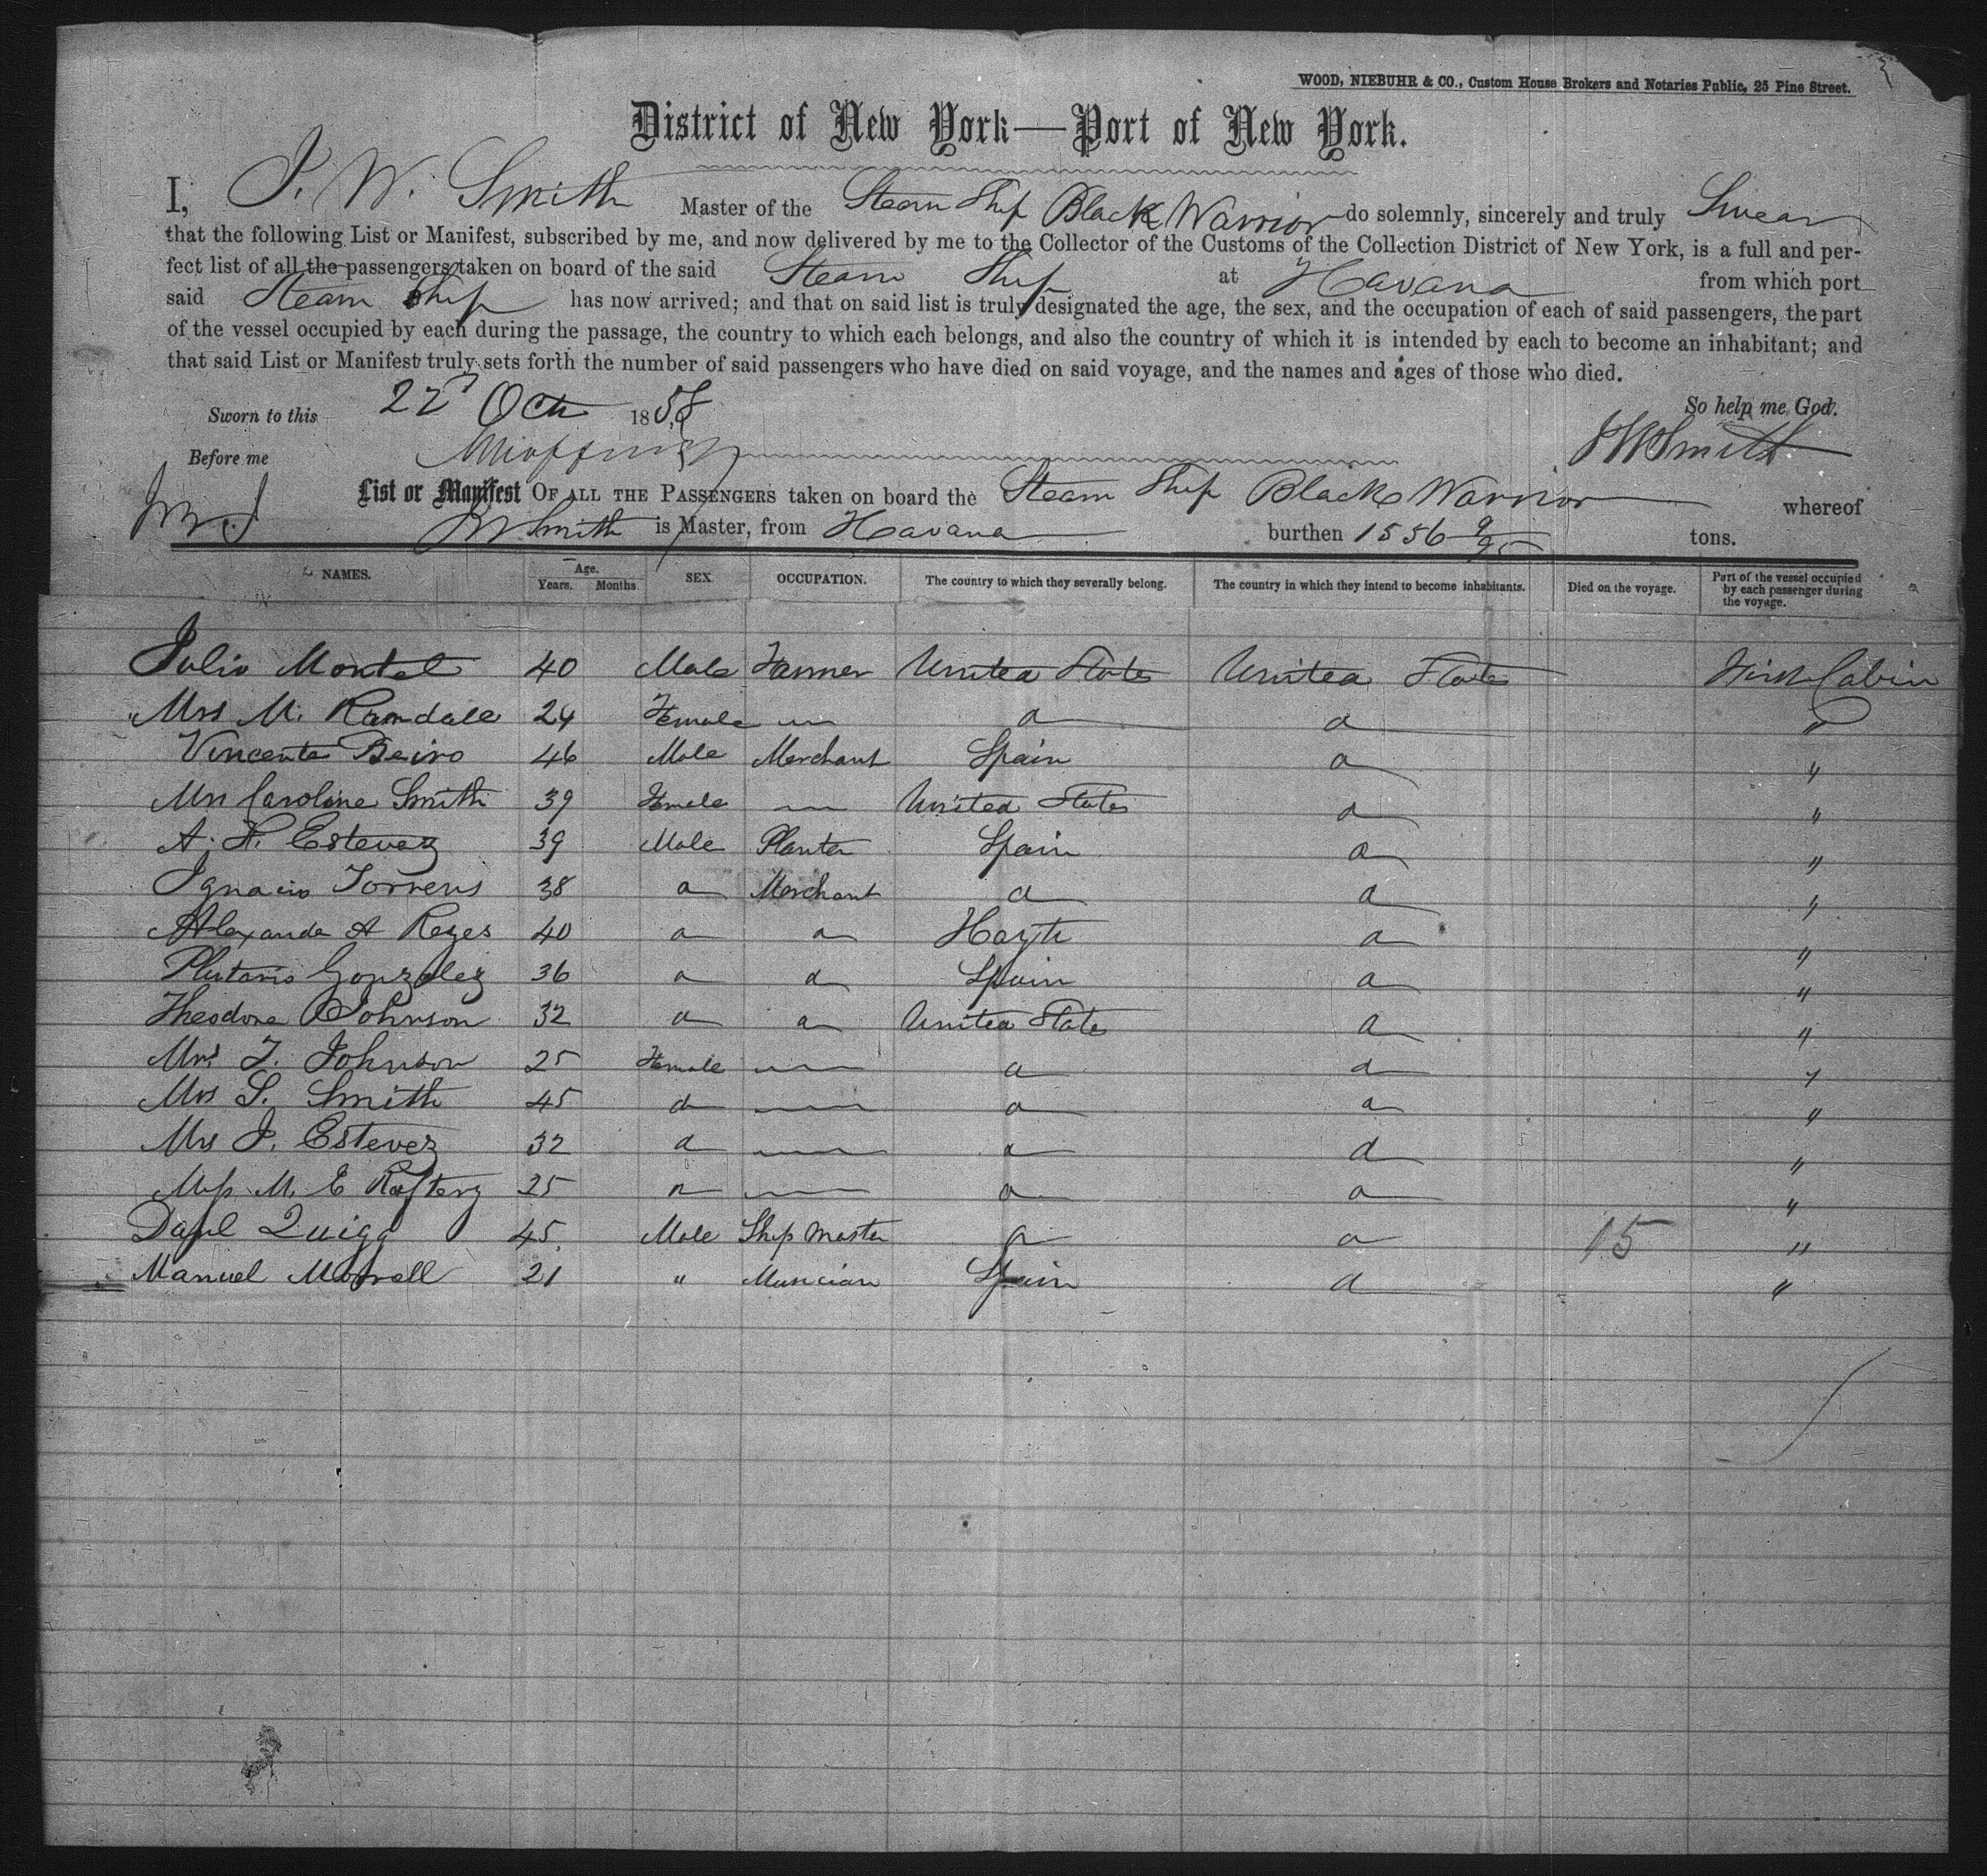 WOOD, NIEBUHR & CO., Custom House Brokers and Notaries Public, 25 Pine Street.
District of New York—Port of New York.
I, J. W. Smith Master of the Steam Ship Black Warrior do solemnly, sincerely and truly Swear
that the following List or Manifest, subscribed by me, and now delivered by me to the Collector of the Customs of the Collection District of New York, is a full and per-
fect list of all the passengers taken on board of the said Steam Ship at Havana from which port
said Steam Ship has now arrived; and that on said list is truly designated the age, the sex, and the occupation of each of said passengers, the part
of the vessel occupied by each during the passage, the country to which each belongs, and also the country of which it is intended by each to become an inhabitant; and
that said List or Manifest truly sets forth the number of said passengers who have died on said voyage, and the names and ages of those who died.
Sworn to this 22d Oct 1858 So help me God.
Before me JWSmith
List or Manifest OF ALL THE PASSENGERS taken on board the Steam Ship Black Warrior whereof
JW Smith is Master, from Havana burthen 1556 9/95 tons.
NAMES. Age. Years. Months. SEX. OCCUPATION. The country to which they severally belong. The country in which they intend to become inhabitants. Died on the voyage. Part of the vessel occupied by each passenger during the voyage.
Julio Montel 40 Male Farmer United States United States First Cabin
Mrs M. Randale 24 Female — d d "
Vincente Beiro 46 Male Merchant Spain d "
Mrs Caroline Smith 39 Female — United States d "
A. H. Estevez 39 Male Planter Spain d "
Ignacio Torrens 38 d Merchant d d "
Alexander A Reyes 40 d d Hayti d "
Gonzalez 36 d d Spain d "
Theodore Johnson 32 d d United States d "
Mrs T. Johnson 25 Female — d d "
Mrs S. Smith 45 d — d d "
Mrs J. Estevez 32 d — d d "
Miss M. E Raftery 25 d — d d "
Danl Quigg 45 Male Ship Master d d 15 "
Manuel Morrell 21 " Musician Spain d "